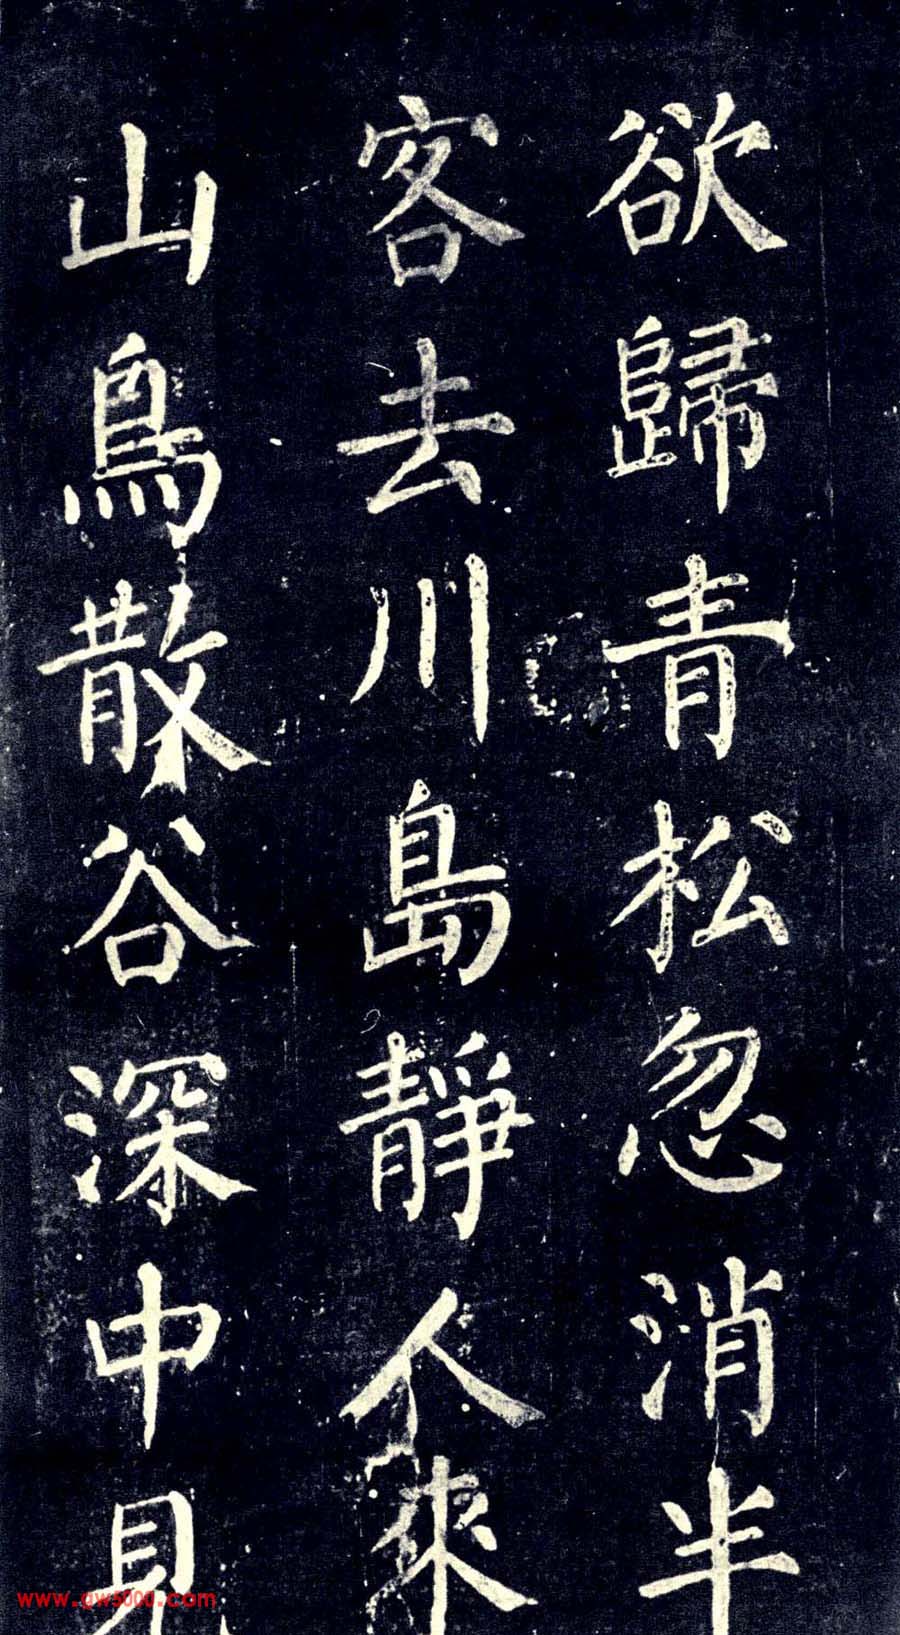 欲歸青松忽消半
客去川島靜人來
山鳥散谷深中見
www.gw5000.com